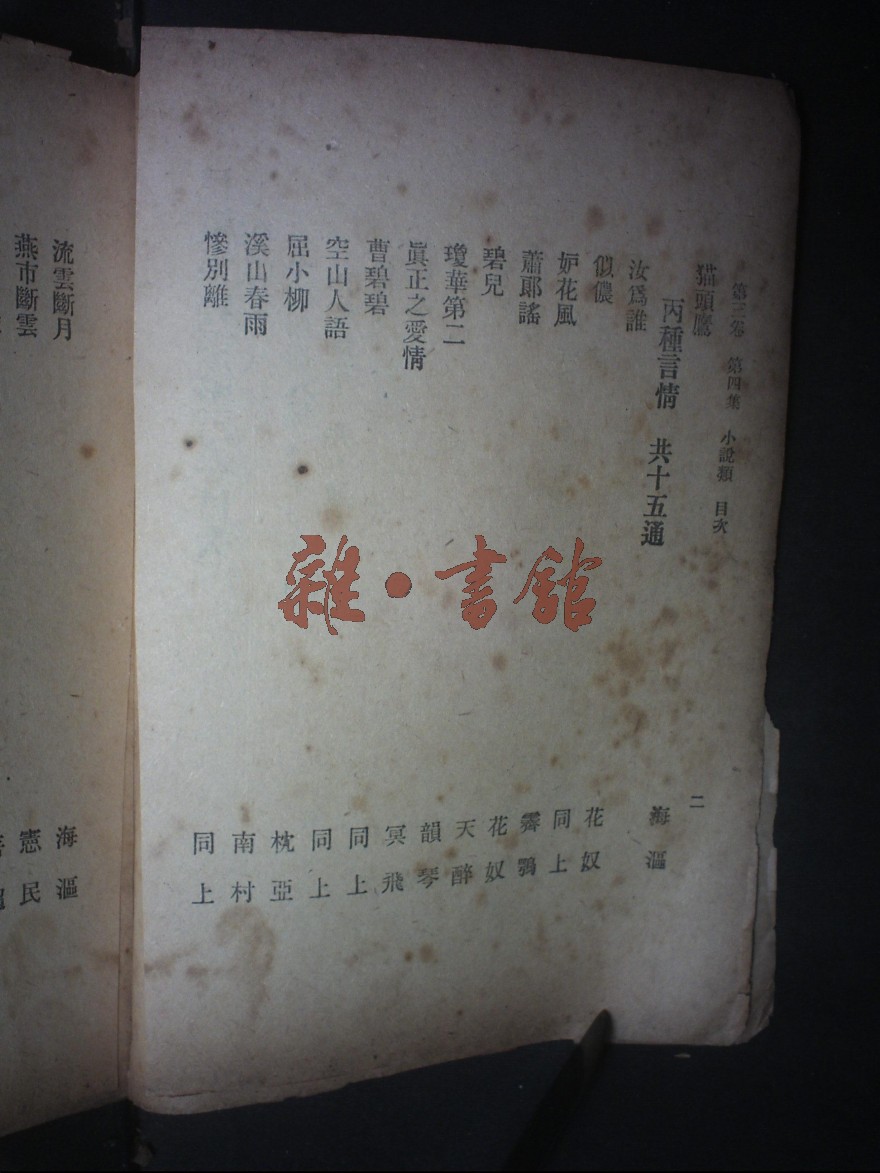 第三卷 第四集 小說類 目次 二
猫頭鷹 海漚
丙種言情 共十五通
汝爲誰 花奴
似儂 同上
妒花風 霽鶚
蕭郎謠 花奴
碧兒 天醉
瓊華第二 韻琴
眞正之愛情 冥飛
曹碧碧 同上
空山人語 同上
屈小柳 枕亞
溪山春雨 南村
慘別離 同上
流雲斷月 海漚
燕市斷雲 憲民
雜·書館